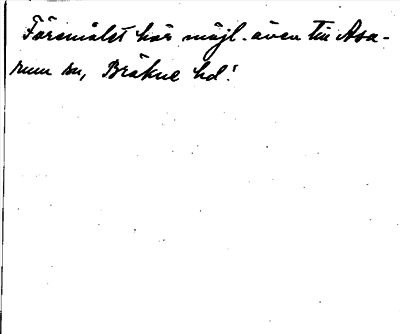 Föremålet hör möjl. även till Asa-
rum sn, Bräkne hd!